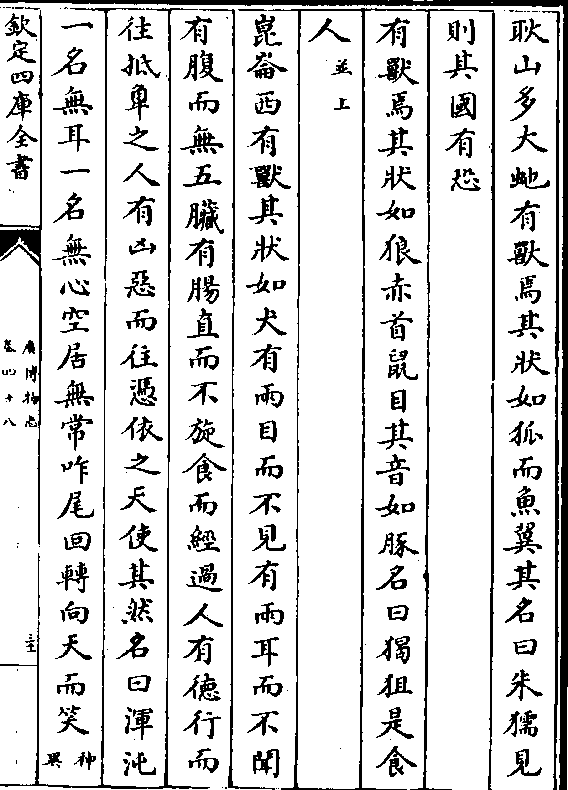 耿山多大虵有獸焉其狀如狐而魚翼其名曰朱獳見
則其國有恐
有獸焉其狀如狼赤首鼠目其音如豚名曰獦狙是食
人並上
崑崙西有獸其狀如犬有兩目而不見有兩耳而不聞
有腹而無五臟有腸直而不旋食而經過人有德行而
往抵觸之人有凶惡而往憑依之天使其然名曰渾沌
一名無耳一名無心空居無常咋尾回轉向天而笑神異
欽定四庫全書
廣博物志
卷四十八